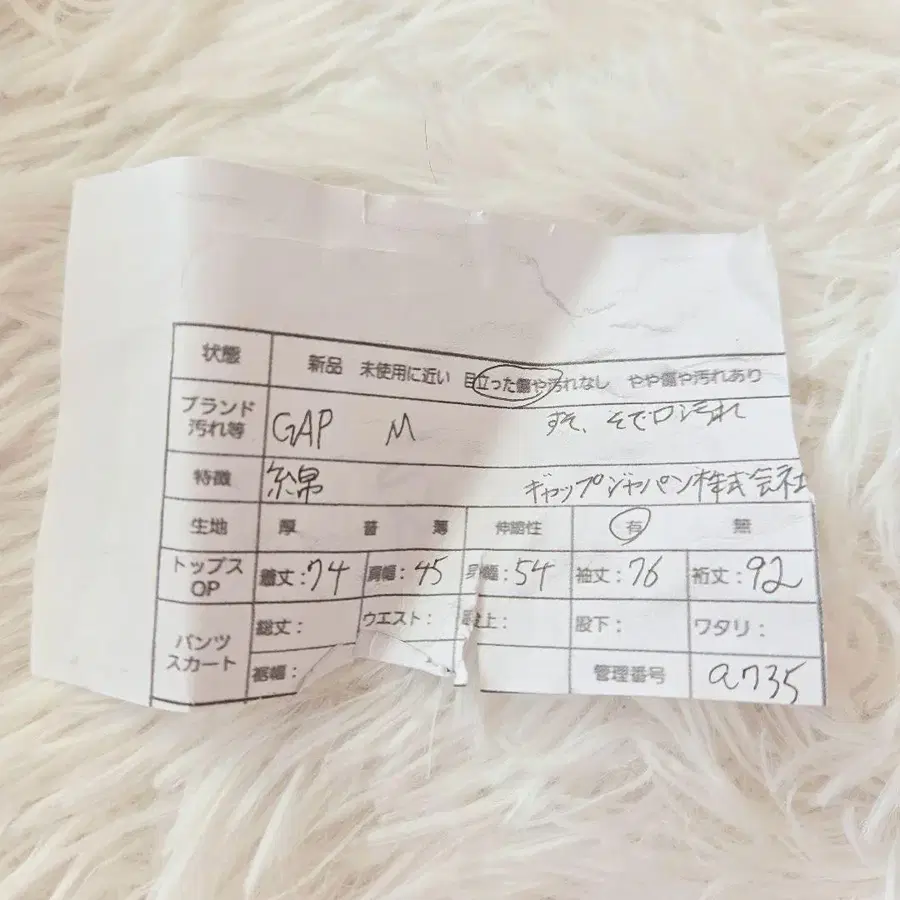 状態 新品 未使用に近い 目立った傷や汚れなし やや傷や汚れあり
ブランド 汚れ等 GAP M すそ、そで口汚れ
特徴 綿 ギャップジャパン株式会社
生地 厚 普 薄 伸縮性 有 無
トップス OP 着丈:74 肩幅:45 身幅:54 袖丈:76 裄丈:92
パンツ スカート 総丈: ウエスト: 股上: 股下: ワタリ:
裾幅: 管理番号 a735